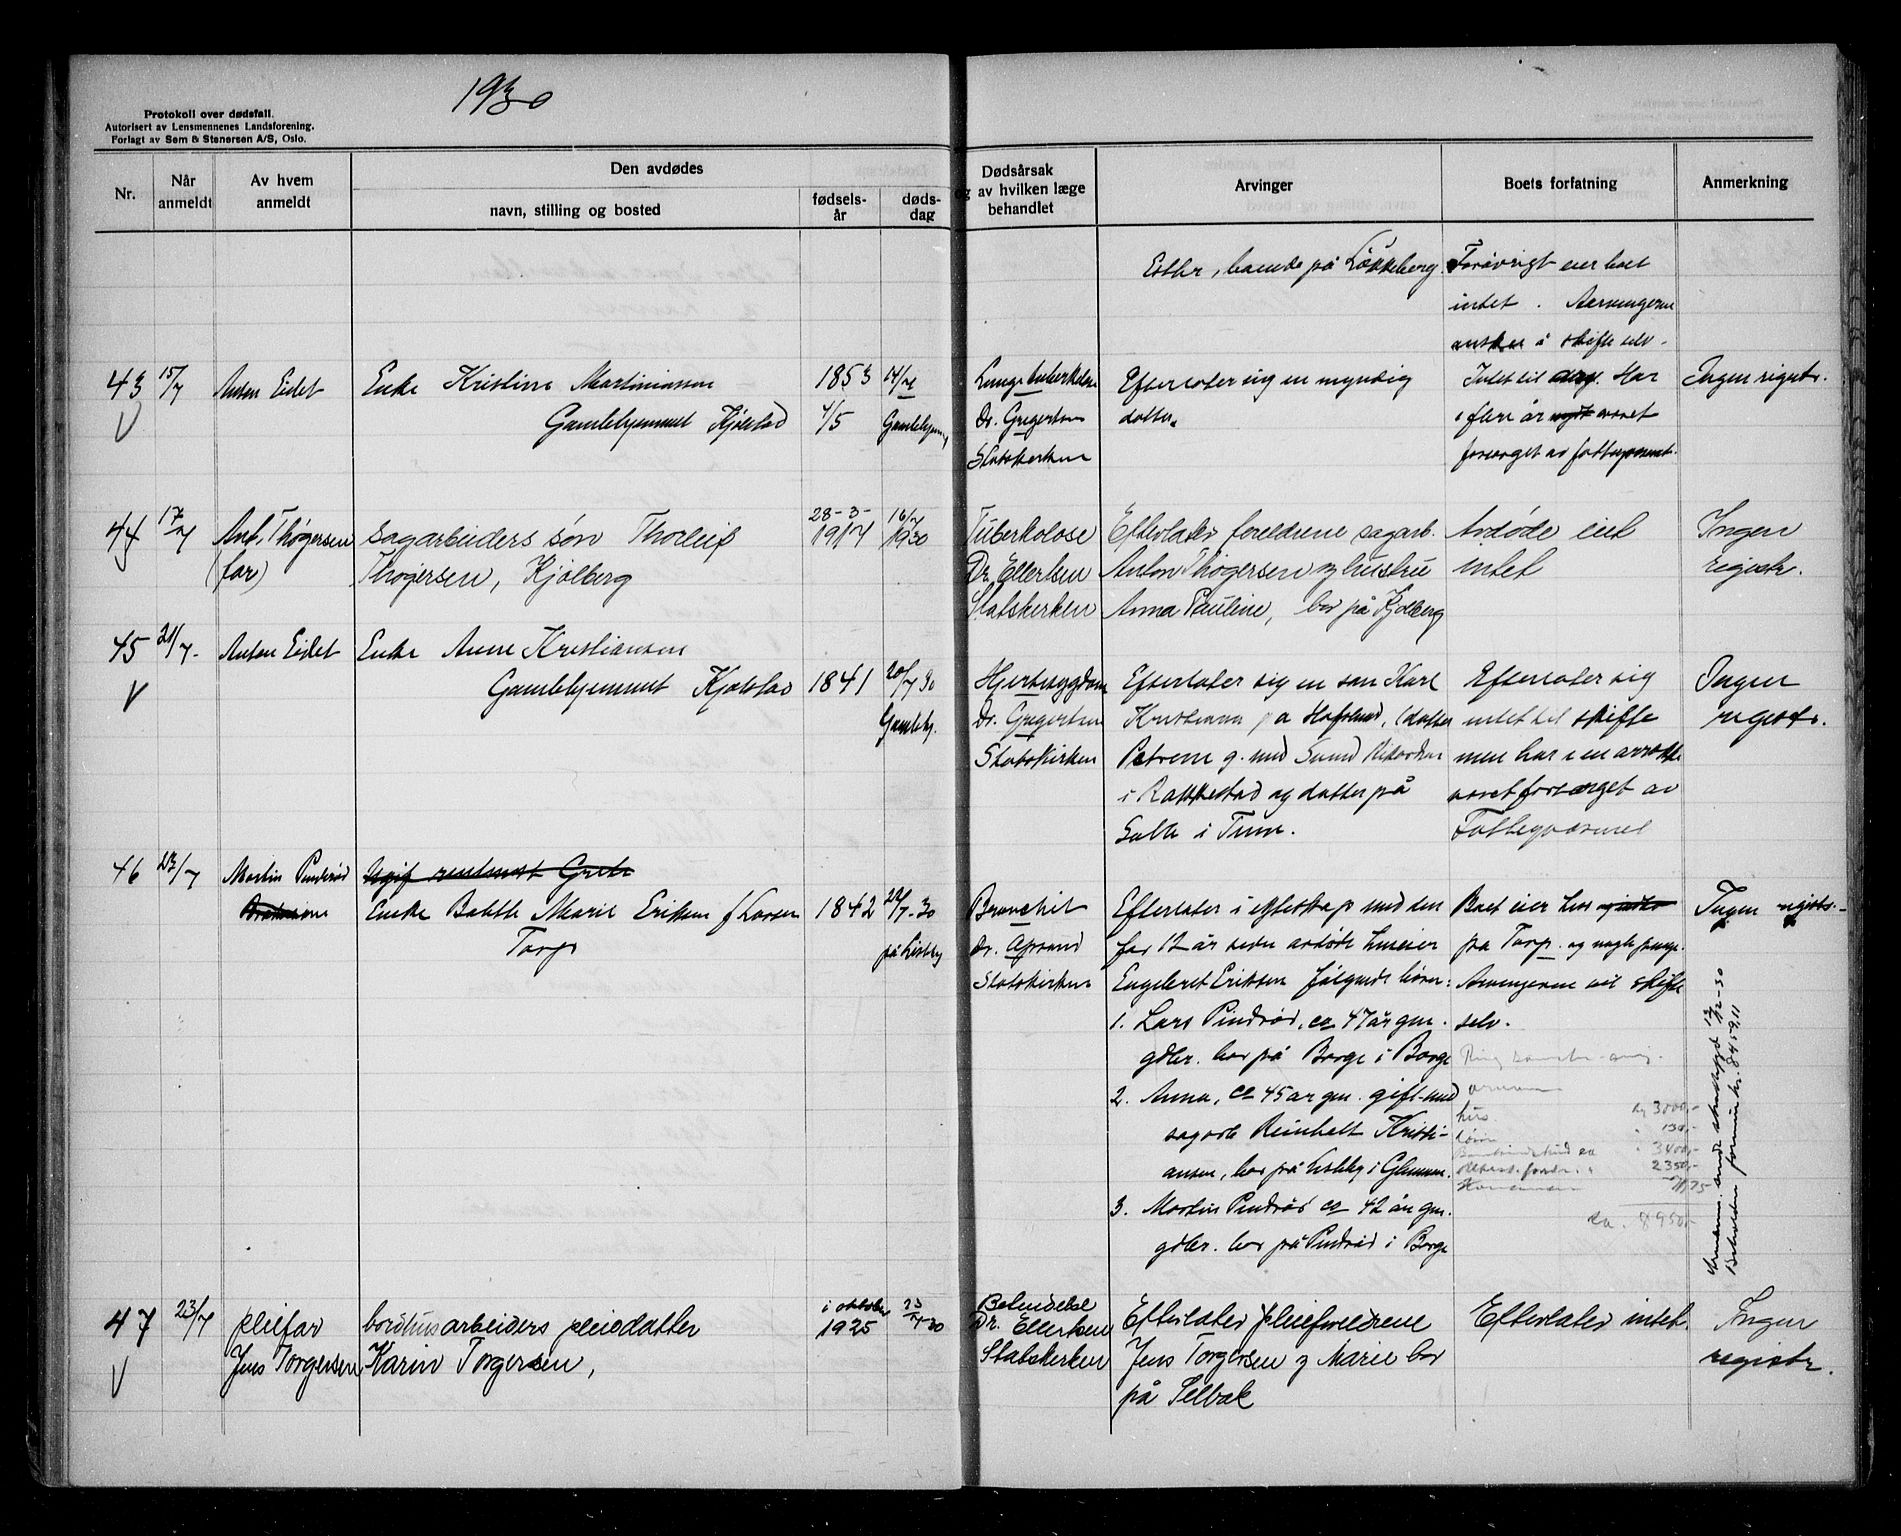 1930
Protokoll over dødsfall.
Autorisert av Lensmennenes Landsforening.
Forlagt av Sem & Stenersen A/S, Oslo.
Nr.
Når anmeldt
Av hvem anmeldt
Den avdødes
navn, stilling og bosted
fødsels-år
døds-dag
Dødsårsak
og av hvilken læge
behandlet
Arvinger
Boets forfatning
Anmerkning
Esther, boende på Løkkeberg.
Forøvrigt eier boet
intet. Arvingerne
ønsker å skifte selv.
43 15/7 Anton Eidet
Enke Kristine Martiniassen
Gamlehjemmet Kjølstad
1853
4/5
14/7
Gamlehjem
Lungetuberkulose
Dr. Gregertsen
Statskirken
Efterlater sig en myndig
datter.
Intet til arv. Har
i flere år nydt været
forsørget av fattigvæsenet.
Ingen registr.
V
44 17/7 Ant. Thøgersen
(far)
sagarbeiders søn Thorleif
Thøgersen, Kjølberg
28-3-
1917
16/7
1930
Tuberkolose
Dr. Ellertsen
Statskerken
Efterlater foreldrene sagarb.
Anton Thøgersen og hustru
Anna Pauline, bor på Kjølberg
Avdøde eiet
intet
Ingen
registr.
45 21/7- Anton Eidet
Enke Anne Kristiansen
Gamlehjemmet Kjølstad
1841
20/7 30
Gamlehj.
Hjertesygdom
Dr. Gregertsen
Statskirken
Efterlater sig en søn Karl
Kristiansen på Hafslund, 1 datter
Petrine g. med
i Rakkestad og datter på
i Tune.
Efterlater sig
intet til skifte
men har i en årrekke
været forsørget av
Fattigvæsenet
Ingen
registr.
V
46 23/7 Martin Pindrød
Enke Marie Eriksen f. Larsen
Torp
1842
22/7-30
på Lisleby
Bronchit
Dr.
Statskirken
Efterlater i egteskap med den
for 12 år siden avdøde
Engebret Eriksen følgende børn:
1. Lars Pindrød, ca 47 år gm.
gdbr. bor på Borge i Borge
2. Anna, ca 45 år gm. gift med
sagarb. Reinholt Kristi-
ansen, bor på Lisleby i Glemmen.
3. Martin Pindrød ca 42 år gm.
gdbr. bor på Pindrød i Borge
Boet eier hus
på Torp. og nogle penge.
Arvingerne vil skifte
selv.
hus 3000,-
130,-
3400,-
2350,-
ca. 8950,-
Ingen registr.
47 23/7 pleiefar
Jens Torgersen
bordhusarbeiders pleiedatter
Karin Torgersen,
i oktober
1925
23/7 30
Betendelse
Dr. Ellertsen
Statskerken
Efterlater pleieforeldrene
Jens Torgersen og Marie bor
på Selbak
Efterlater intet.
Ingen
registr.
V